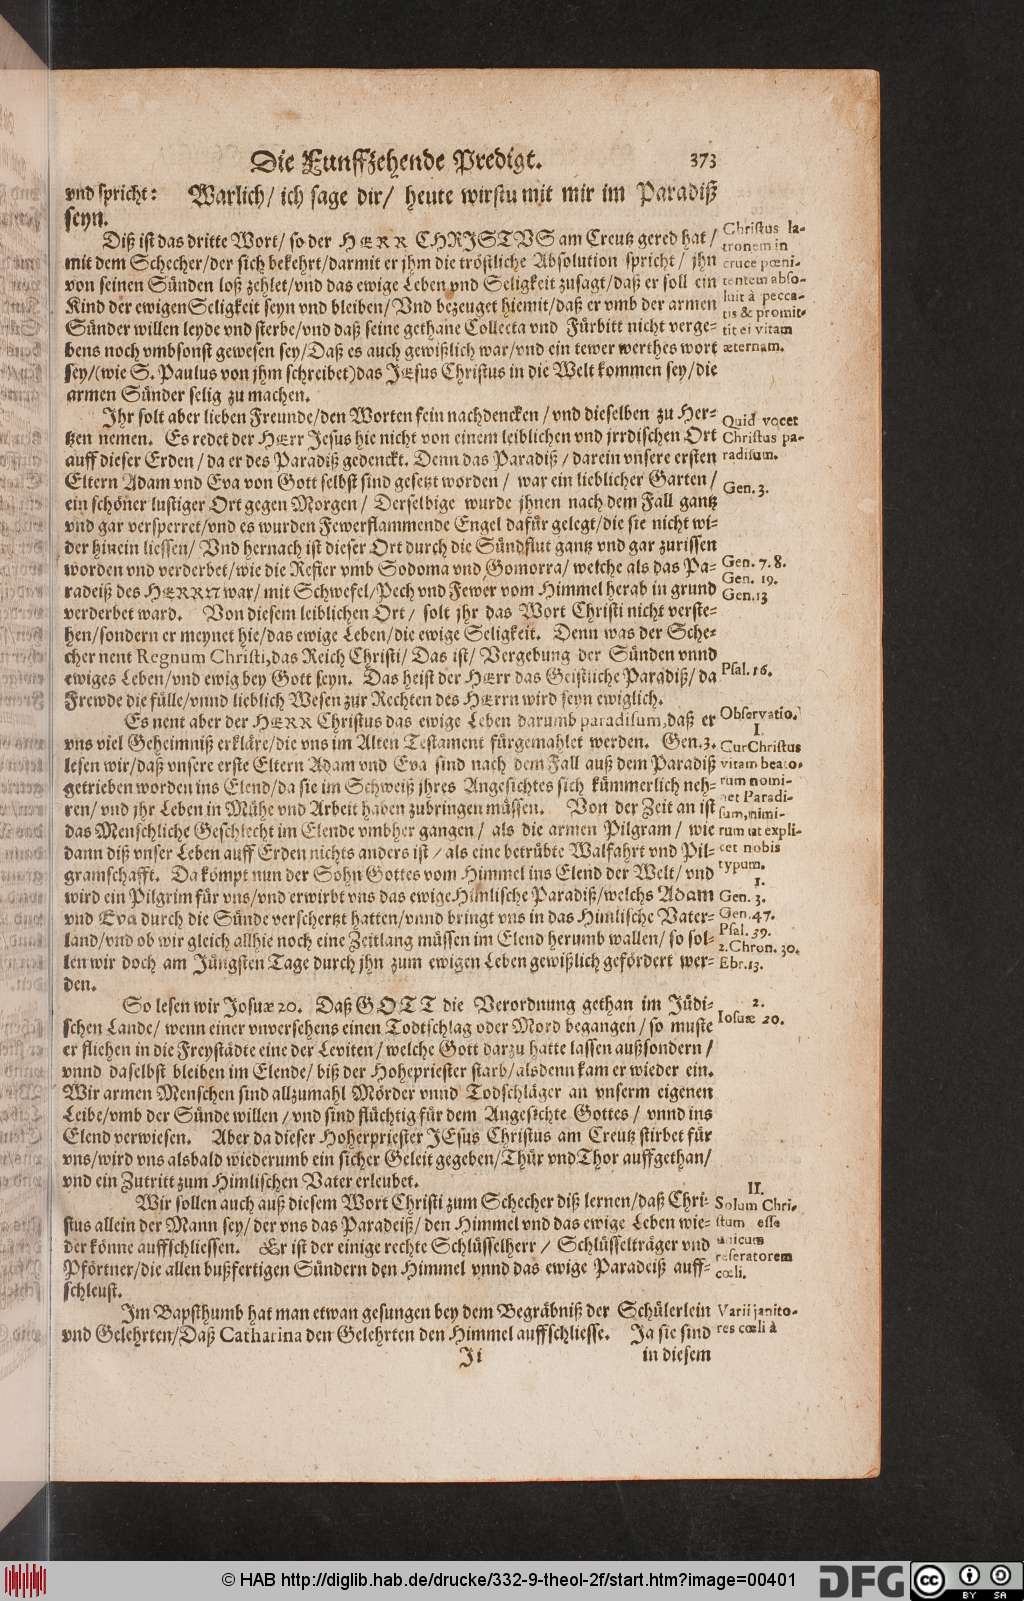 Die Funffzehende Predigt. 373
vnd spricht: Warlich/ ich sage dir/ heute wirstu mit mir im Paradiß
seyn.
Diß ist das dritte Wort/ so der HERR CHRISTVS am Creutz gered hat/
mit dem Schecher/der sich bekehrt/darmit er jhm die tröstliche Absolution spricht/ jhn
von seinen Sünden loß zehlet/vnd das ewige Leben vnd Seligkeit zusagt/daß er soll ein
Kind der ewigen Seligkeit seyn vnd bleiben/ Vnd bezeuget hiemit/daß er vmb der armen
Sünder willen leyde vnd sterbe/vnd daß seine gethane Collecta vnd Fürbitt nicht verge-
bens noch vmbsonst gewesen sey/Daß es auch gewißlich war/vnd ein tewer werthes wort
sey/(wie S. Paulus von jhm schreibet)das JEsus Christus in die Welt kommen sey/die
armen Sünder selig zu machen.
Jhr solt aber lieben Freunde/den Worten fein nachdencken/ vnd dieselben zu Her-
tzen nemen. Es redet der HErr Jesus hie nicht von einem leiblichen vnd jrrdischen Ort
auff dieser Erden/ da er des Paradiß gedenckt. Denn das Paradiß/ darein vnsere ersten
Eltern Adam vnd Eva von Gott selbst sind gesetzt worden/ war ein lieblicher Garten/
ein schöner lustiger Ort gegen Morgen/ Derselbige wurde jhnen nach dem Fall gantz
vnd gar versperret/vnd es wurden Fewerflammende Engel dafür gelegt/die sie nicht wi-
der hinein liessen/ Vnd hernach ist dieser Ort durch die Sündflut gantz vnd gar zurissen
worden vnd verderbet/wie die Refier vmb Sodoma vnd Gomorra/ welche als das Pa-
radeiß des HERRN war/ mit Schwefel/Pech vnd Fewer vom Himmel herab in grund
verderbet ward. Von diesem leiblichen Ort/ solt jhr das Wort Christi nicht verste-
hen/sondern er meynet hie/das ewige Leben/die ewige Seligkeit. Denn was der Sche-
cher nent Regnum Christi,das Reich Christi/ Das ist/ Vergebung der Sünden vnnd
ewiges Leben/vnd ewig bey Gott seyn. Das heist der HErr das Geistliche Paradiß/ da
Frewde die fülle/vnnd lieblich Wesen zur Rechten des HErrn wird seyn ewiglich.
Es nent aber der HERR Christus das ewige Leben darumb paradisum,daß er
vns viel Geheimniß erkläre/die vns im Alten Testament fürgemahlet werden. Gen.3.
lesen wir/daß vnsere erste Eltern Adam vnd Eva sind nach dem Fall auß dem Paradiß
getrieben worden ins Elend/da sie im Schweiß jhres Angesichtes sich kümmerlich neh-
ren/ vnd jhr Leben in Mühe vnd Arbeit haben zubringen müssen. Von der Zeit an ist
das Menschliche Geschlecht im Elende vmbher gangen/ als die armen Pilgram/ wie
dann diß vnser Leben auff Erden nichts anders ist/ als eine betrübte Walfahrt vnd Pil-
gramschafft. Da kömpt nun der Sohn Gottes vom Himmel ins Elend der Welt/ vnd
wird ein Pilgrim für vns/vnd erwirbt vns das ewige Himlische Paradiß/welchs Adam
vnd Eva durch die Sünde verschertzt hatten/vnnd bringt vns in das Himlische Vater-
land/vnd ob wir gleich allhie noch eine Zeitlang müssen im Elend herumb wallen/ so sol-
len wir doch am Jüngsten Tage durch jhn zum ewigen Leben gewißlich gefördert wer-
den.
So lesen wir Josuæ 20. Daß GOTT die Verordnung gethan im Jüdi-
schen Lande/ wenn einer vnversehens einen Todtschlag oder Mord begangen/ so muste
er fliehen in die Freystädte eine der Leviten/ welche Gott darzu hatte lassen außsondern/
vnnd daselbst bleiben im Elende/ biß der Hohepriester starb/alsdenn kam er wieder ein.
Wir armen Menschen sind allzumahl Mörder vnnd Todschläger an vnserm eigenen
Leibe/vmb der Sünde willen/ vnd sind flüchtig für dem Angesichte Gottes/ vnnd ins
Elend verwiesen. Aber da dieser Hoherpriester JEsus Christus am Creutz stirbet für
vns/wird vns alsbald wiederumb ein sicher Geleit gegeben/Thür vnd Thor auffgethan/
vnd ein Zutritt zum Himlischen Vater erleubet.
Wir sollen auch auß diesem Wort Christi zum Schecher diß lernen/daß Chri-
stus allein der Mann sey/ der vns das Paradeiß/ den Himmel vnd das ewige Leben wie-
der könne auffschliessen. Er ist der einige rechte Schlüsselherr/ Schlüsselträger vnd
Pförtner/die allen bußfertigen Sündern den Himmel vnnd das ewige Paradeiß auff-
schleust.
Im Bapsthumb hat man etwan gesungen bey dem Begräbniß der Schülerlein
vnd Gelehrten/Daß Catharina den Gelehrten den Himmel auffschliesse. Ja sie sind
Ji in diesem
Christus la-
tronem in
cruce pœni-
tentem abso-
luit à pecca-
tis & promit-
tit ei vitam
æternam.
Quid vocet
Christus pa-
radisum.
Gen. 3.
Gen. 7. 8.
Gen. 19.
Gen. 13
Psal. 16.
Observatio.
I.
Cur Christus
vitam beato-
rum nomi-
net Paradi-
sum,nimi-
rum ut expli-
cet nobis
typum.
1.
Gen. 3.
Gen. 47.
Psal. 39.
2. Chron. 30.
Ebr. 13.
2.
Iosuæ 20.
II.
Solum Chri-
stum esse
unicum
reseratorem
cœli.
Varii janito-
res cœli à
© HAB http://diglib.hab.de/drucke/332-9-theol-2f/start.htm?image=00401
DFG
cc BY SA